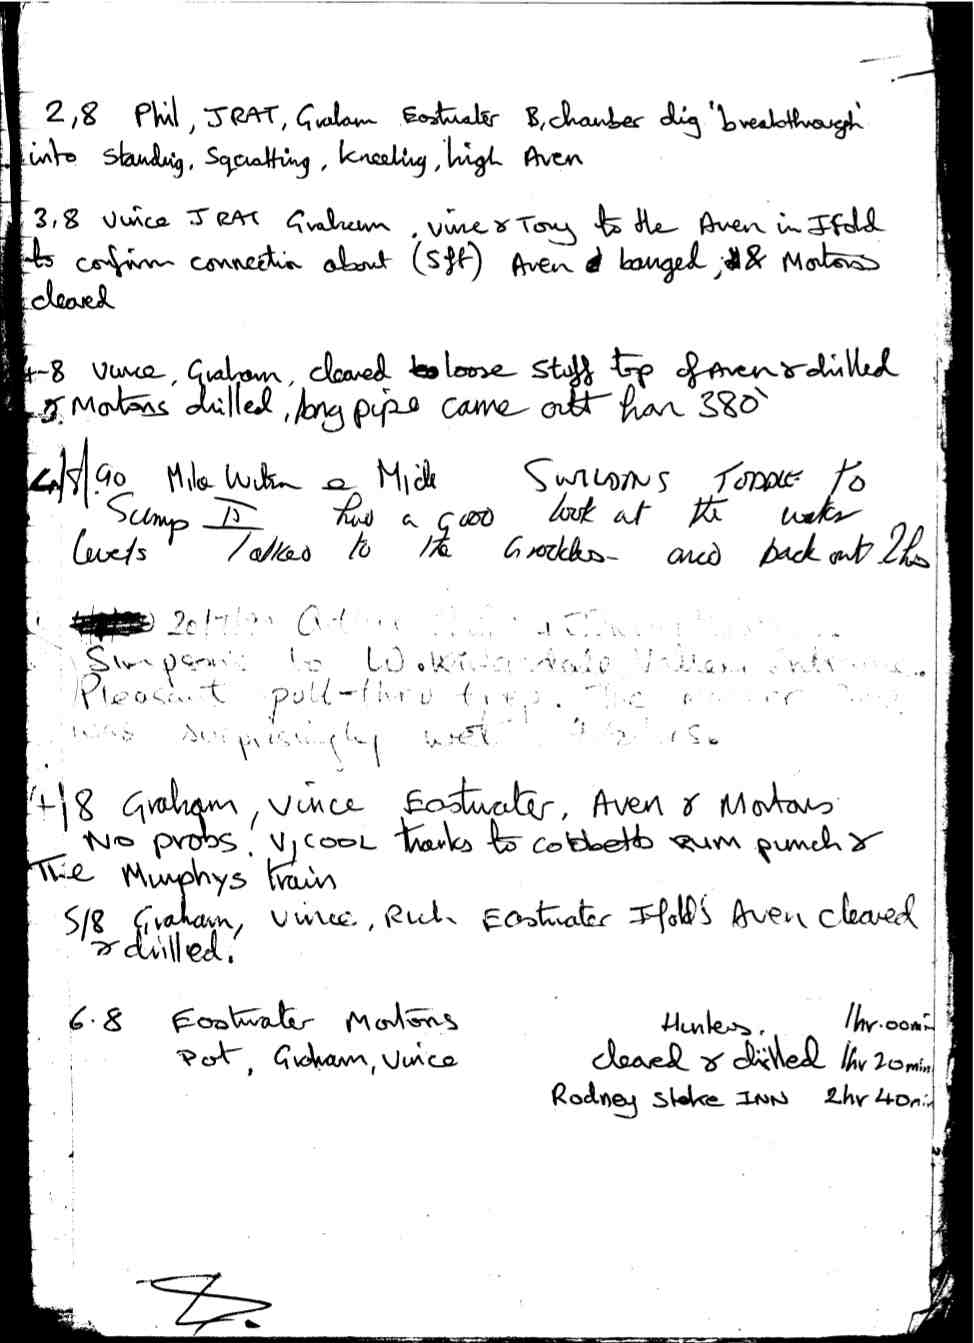 2,8 Phil, JRAT, Graham Eastwater B, chamber dig 'breakthrough'
into standing, Squatting, kneeling, high Aven
3,8 Vince JRAT Graheem, vince & Tony to the Aven in Ifold
to confirm connection about (5ft) Aven banged, & Mortons
cleared
4-8 Vince, Graham, cleared loose stuff top of Aven & drilled
& Mortons drilled, long pipe came out han 380'
4/8/90 Mike Wilson & Mick SWILDONS TODDLE TO
Sump II had a good look at the water
levels Talked to the Grockles - and back out 2hrs
20/7/
to Wo
Pleasant pull-thru trip. The
was surprisingly wet
4/8 Graham, Vince Eastwater, Aven & Mortons
No probs! V, COOL thanks to cobbetts rum punch &
The Murphys train
5/8 Graham, Vince, Rich Eastwater Ifold's Aven cleared
& drilled.
6.8 Eastwater Mortons Hunters. 1hr.00min
Pot, Graham, Vince cleared & drilled 1hr 20min
Rodney Stoke INN 2hr 40min